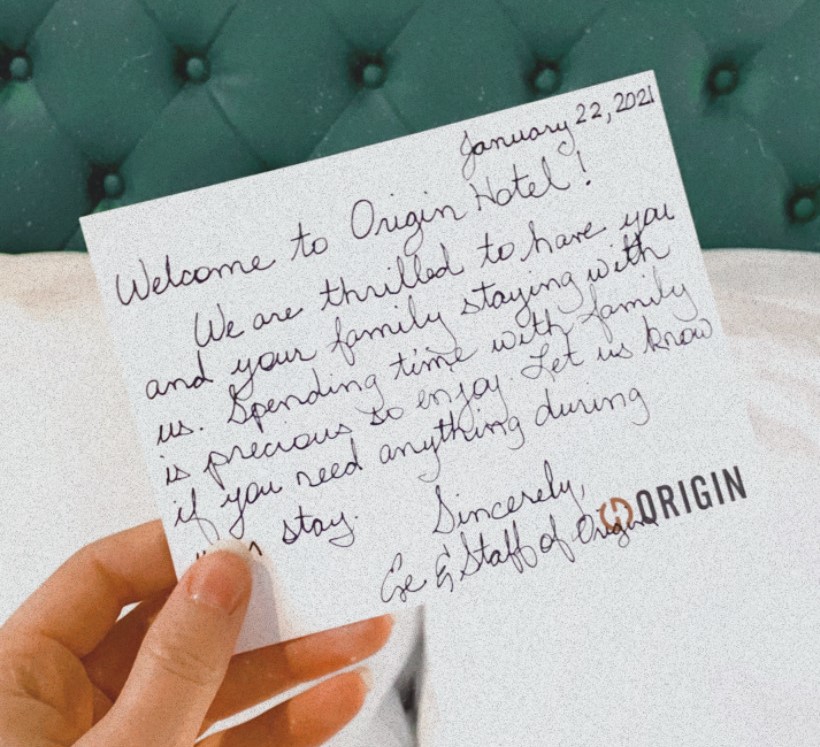 January 22, 2021
Welcome to Origin Hotel!
We are thrilled to have you
and your family staying with
us. Spending time with family
is precious so enjoy. Let us know
if you need anything during
stay.
Sincerely,
ORIGIN
& Staff of Origin